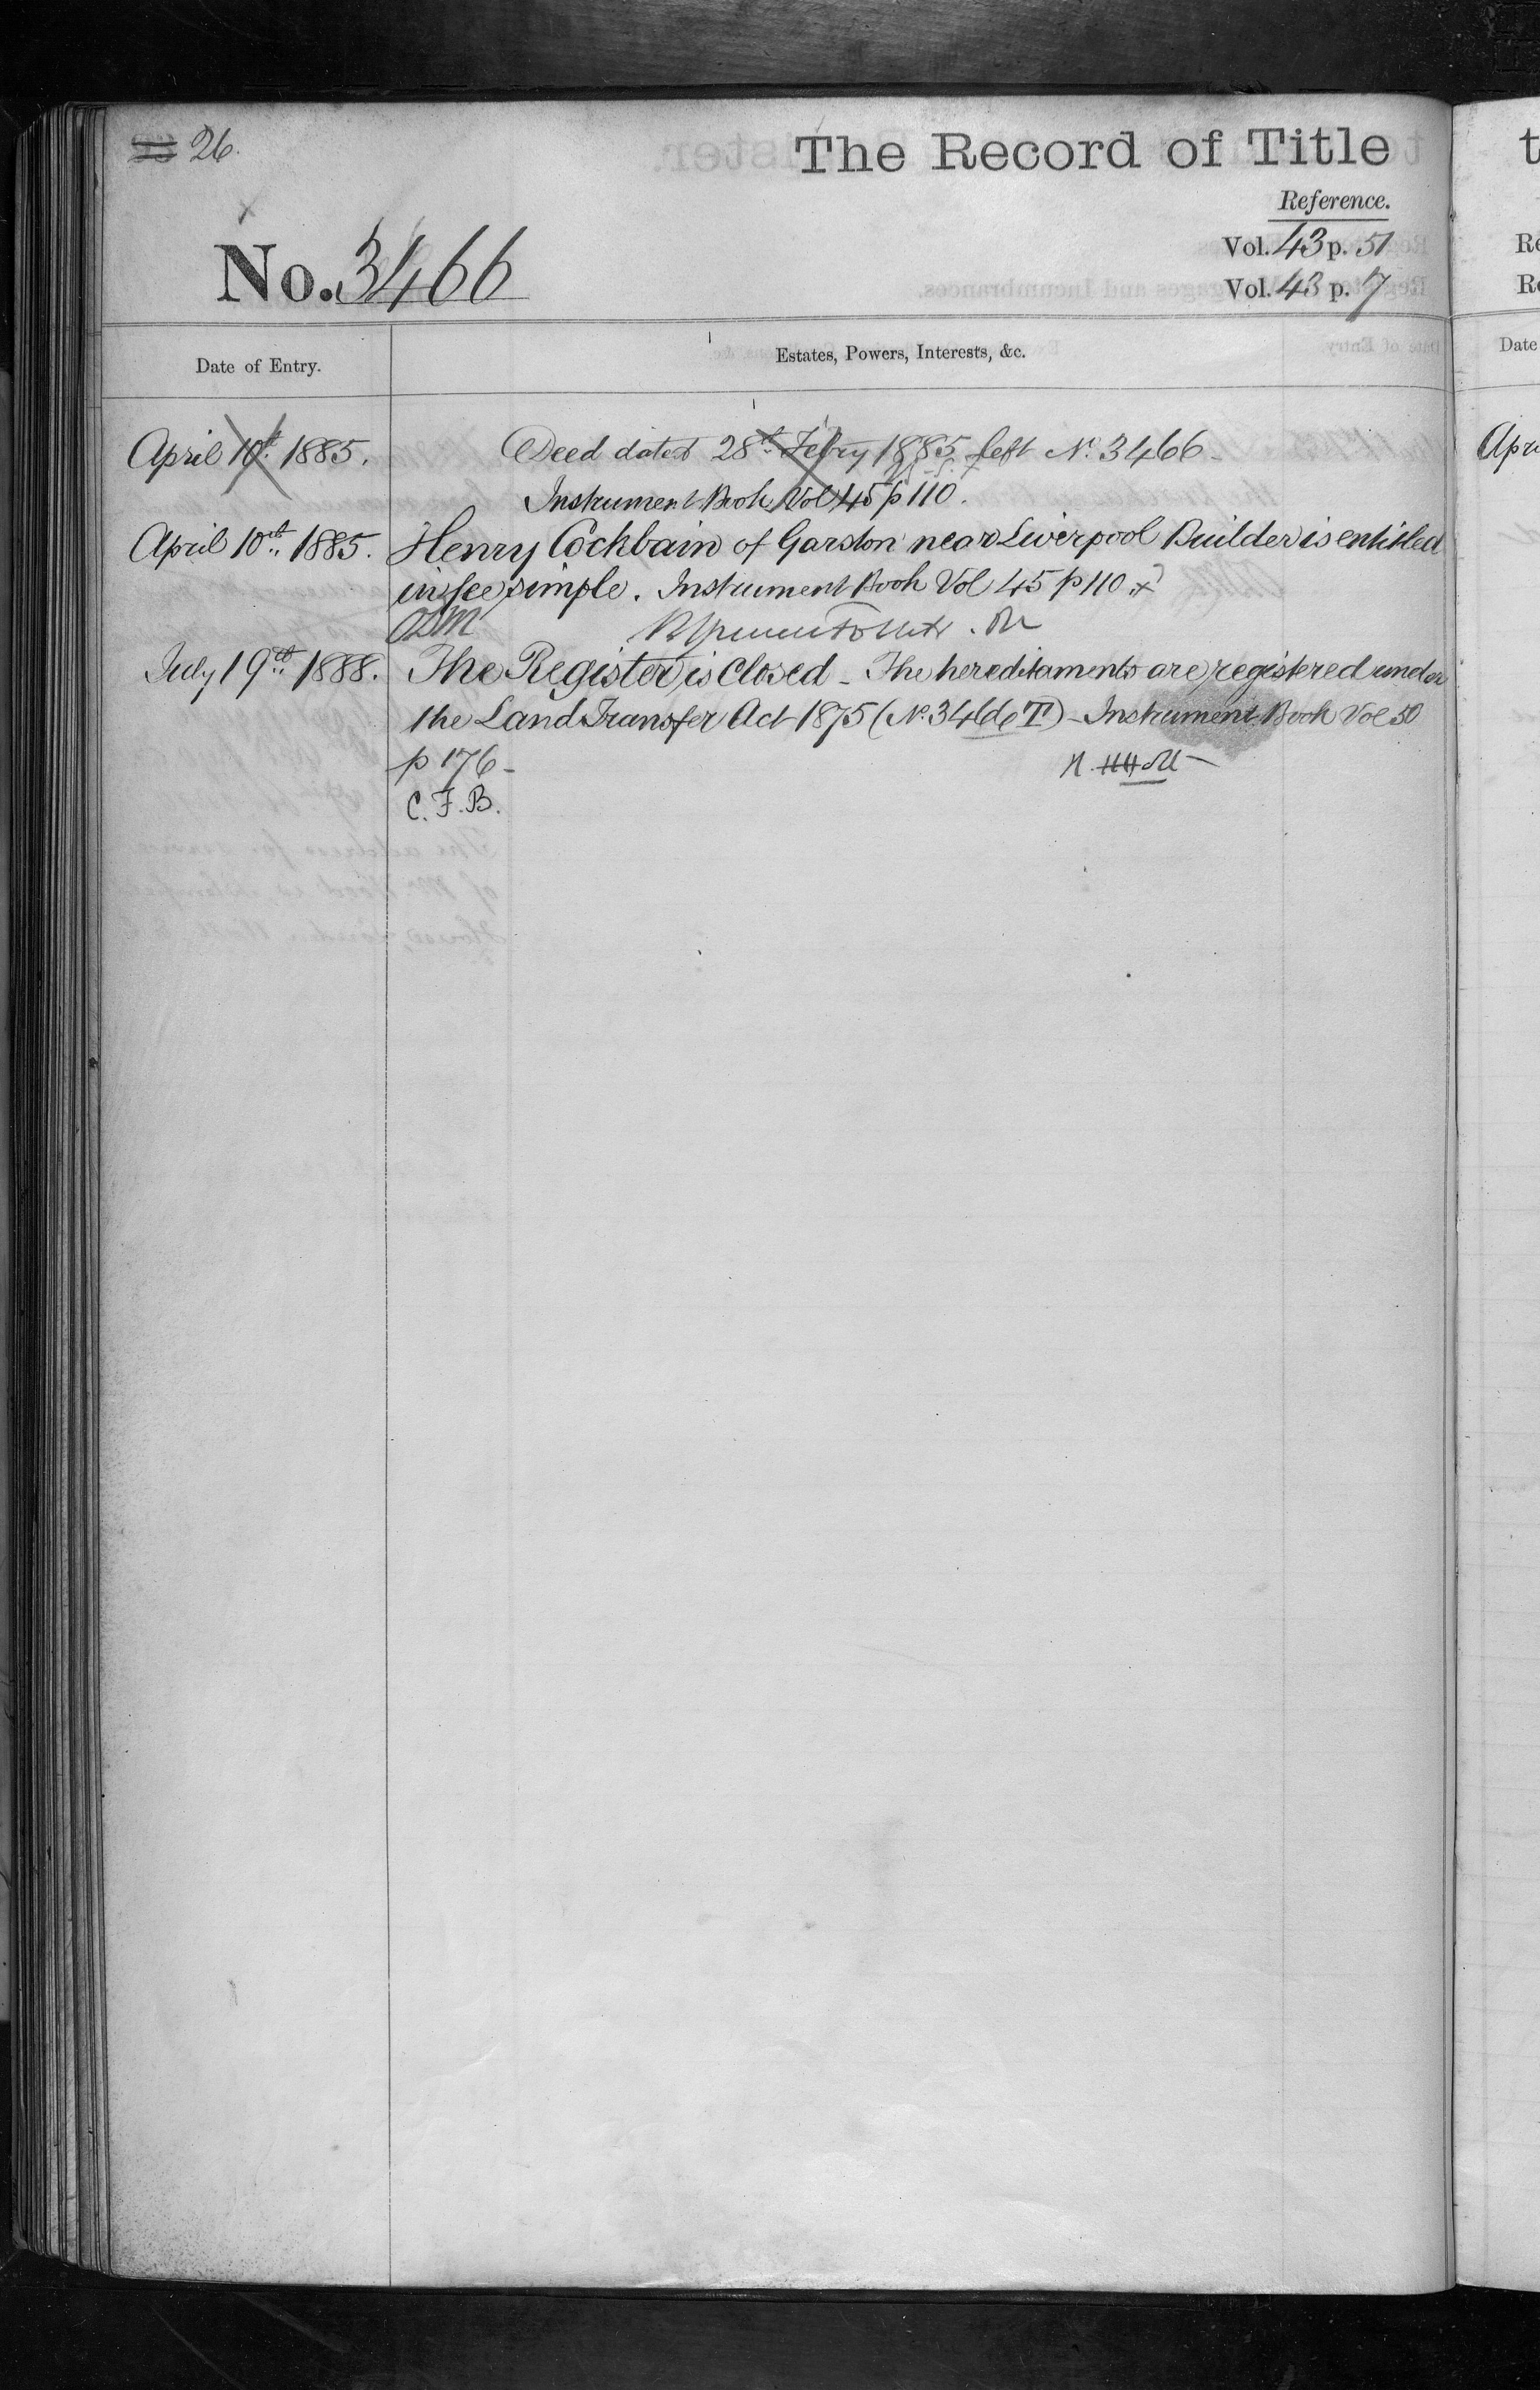 26.
The Record of Title
Reference.
Vol. 43 p. 51
Vol. 43 p. 7
No. 3466
Date of Entry.
Estates, Powers, Interests, &c.
April 10th 1885.
Deed dated 28th Febry 1885 left No. 3466 -
Instrument Book Vol 45 p 110.
April 10th 1885.
Henry Cockbain of Garston near Liverpool Builder is entitled
in fee simple. Instrument Book Vol 45 p 110
July 19th 1888.
The Register is Closed - The hereditaments are registered under
the Land Transfer Act 1875 (No. 3466 T) - Instrument Book Vol 50
p 176 -
C. F. B.
Date